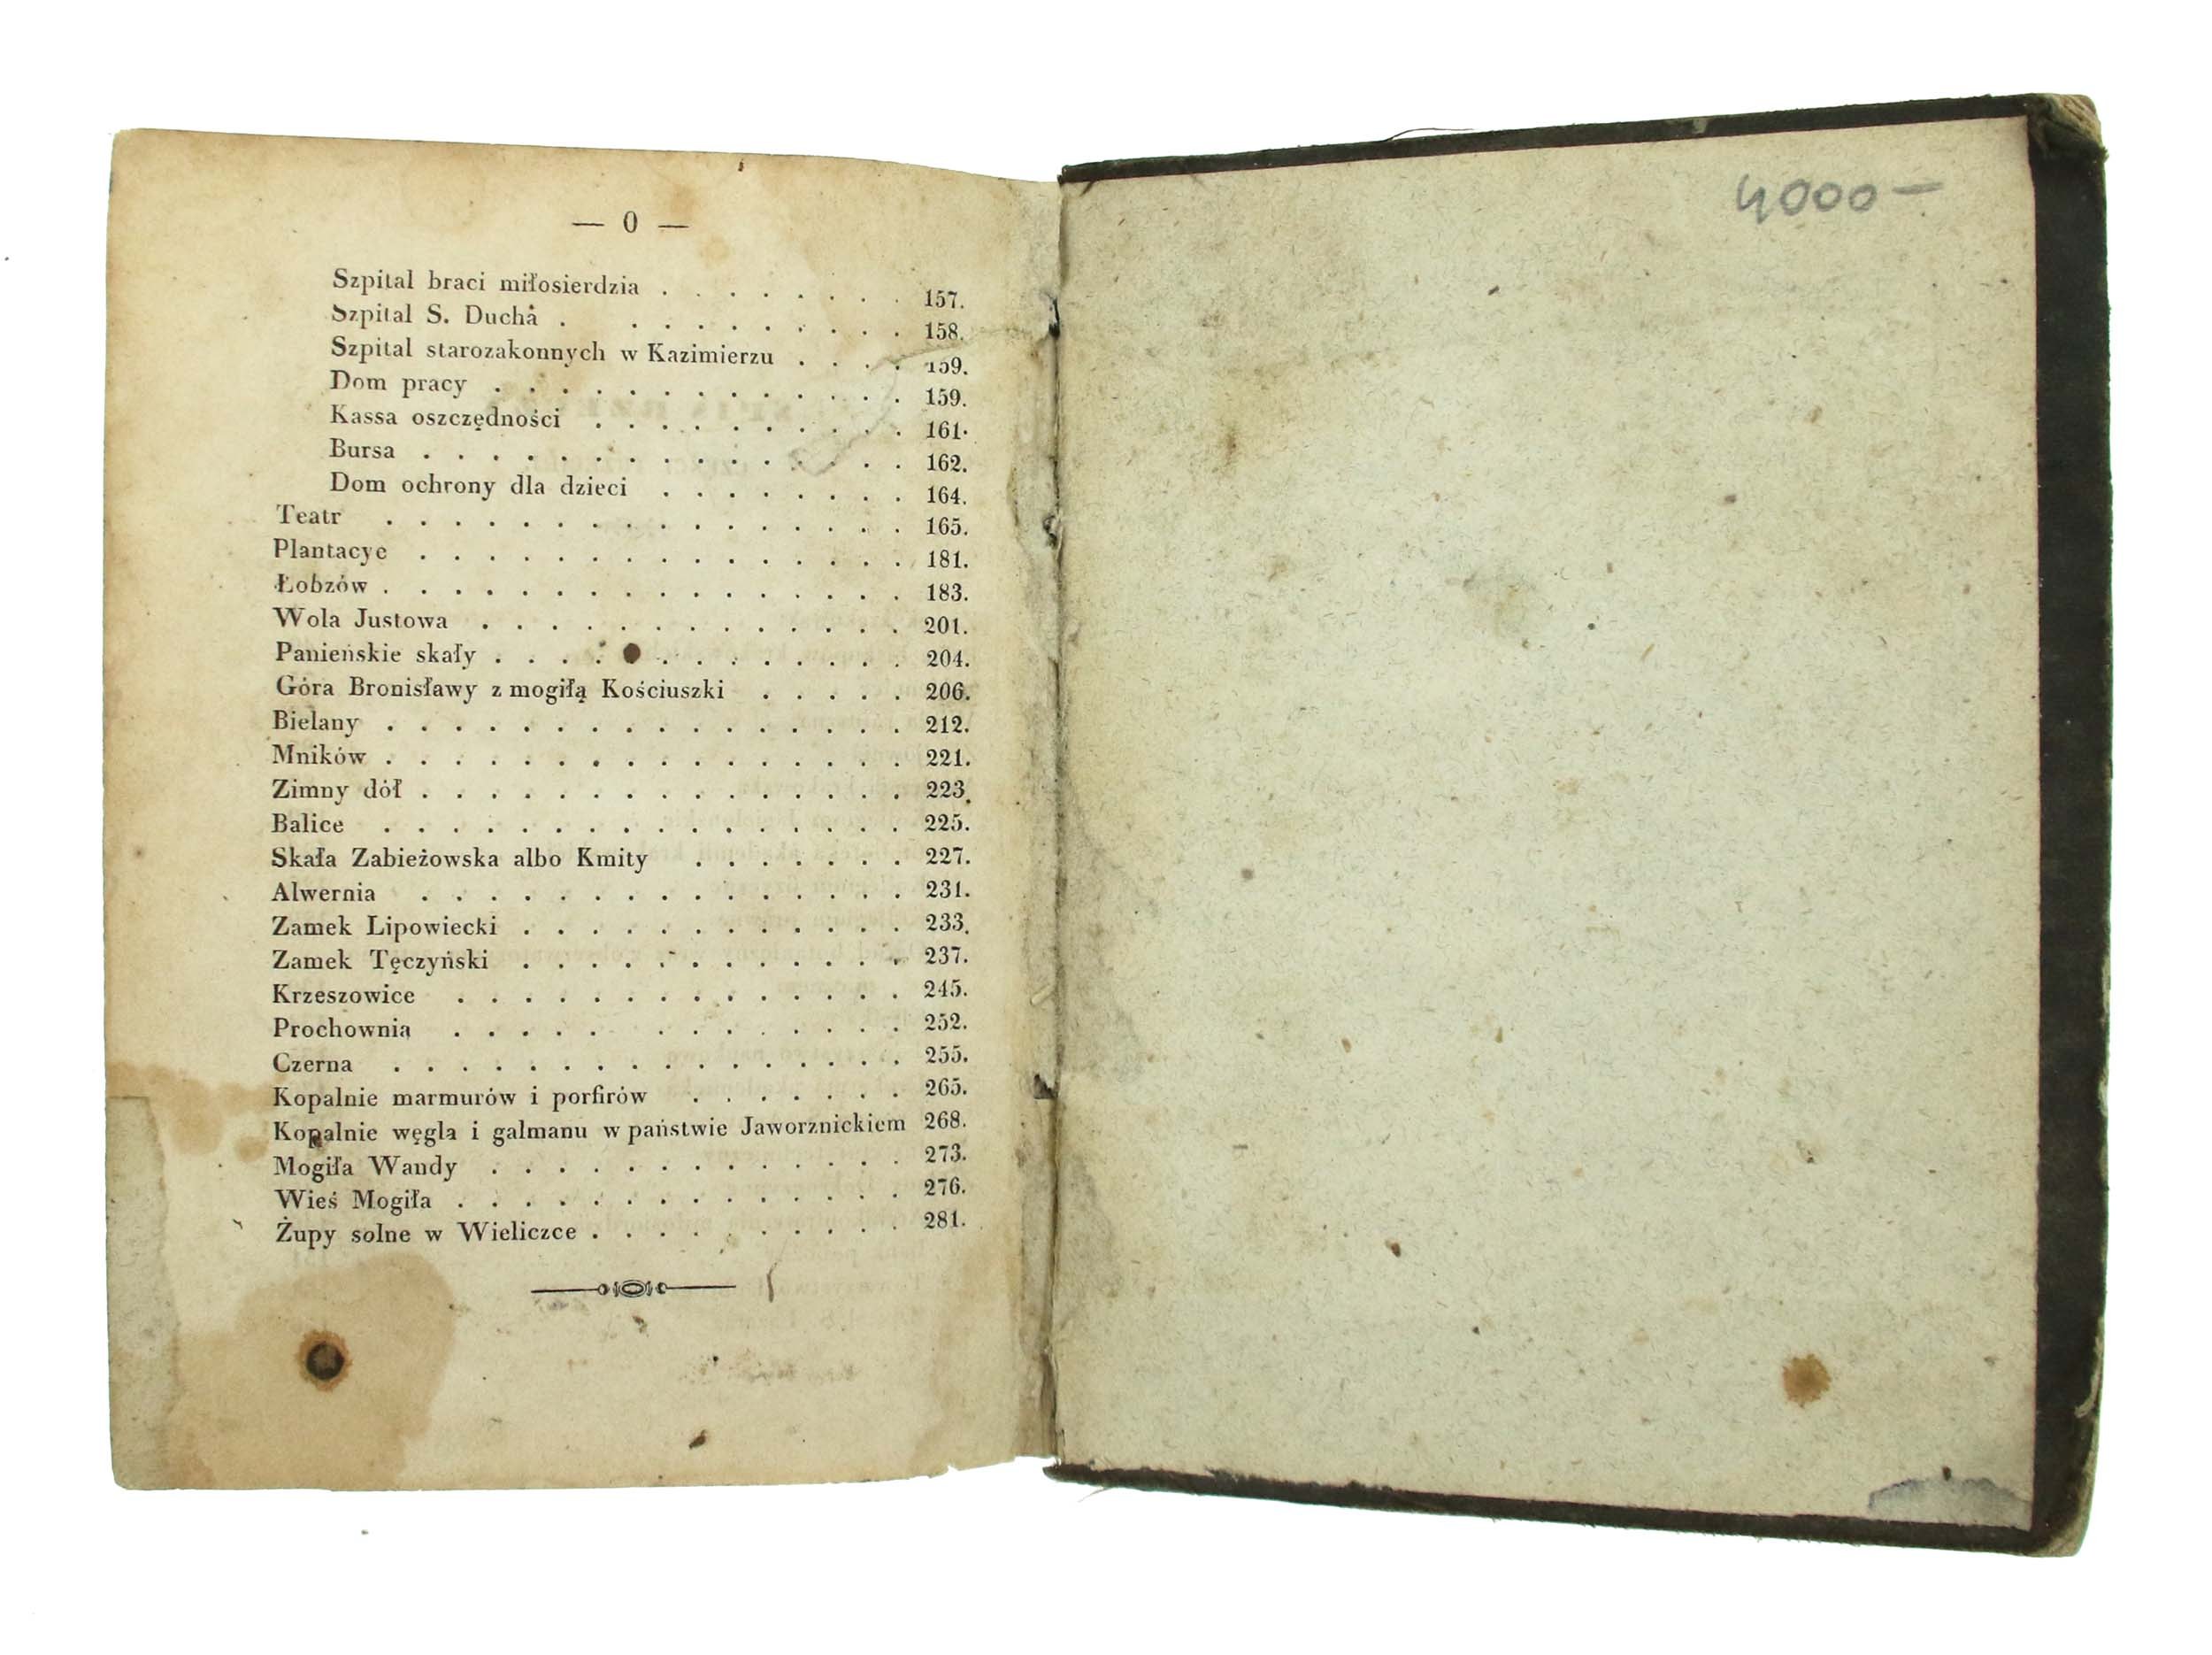 — 0 —
Szpital braci miłosierdzia . . . . . . . . 157.
Szpital S. Ducha . . . . . . . . . . 158.
Szpital starozakonnych w Kazimierzu . . . . 159.
Dom pracy . . . . . . . . . . . . . 159.
Kassa oszczędności . . . . . . . . . . 161.
Bursa . . . . . . . . . . . . . . . 162.
Dom ochrony dla dzieci . . . . . . . . 164.
Teatr . . . . . . . . . . . . . . . . 165.
Plantacye . . . . . . . . . . . . . . . 181.
Łobzów . . . . . . . . . . . . . . . . 183.
Wola Justowa . . . . . . . . . . . . . 201.
Panieńskie skały . . . . . . . . . . . . . 204.
Góra Bronisławy z mogiłą Kościuszki . . . . . 206.
Bielany . . . . . . . . . . . . . . . . 212.
Mników . . . . . . . . . . . . . . . . 221.
Zimny dół . . . . . . . . . . . . . . . 223.
Balice . . . . . . . . . . . . . . . . 225.
Skała Zabieżowska albo Kmity . . . . . . . 227.
Alwernia . . . . . . . . . . . . . . . 231.
Zamek Lipowiecki . . . . . . . . . . . . 233.
Zamek Tęczyński . . . . . . . . . . . . 237.
Krzeszowice . . . . . . . . . . . . . . 245.
Prochownia . . . . . . . . . . . . . 252.
Czerna . . . . . . . . . . . . . . . . 255.
Kopalnie marmurów i porfirów . . . . . . . 265.
Kopalnie węgla i galmanu w państwie Jaworznickiem 268.
Mogiła Wandy . . . . . . . . . . . . . 273.
Wieś Mogiła . . . . . . . . . . . . . . 276.
Żupy solne w Wieliczce . . . . . . . . . . 281.
4000 —